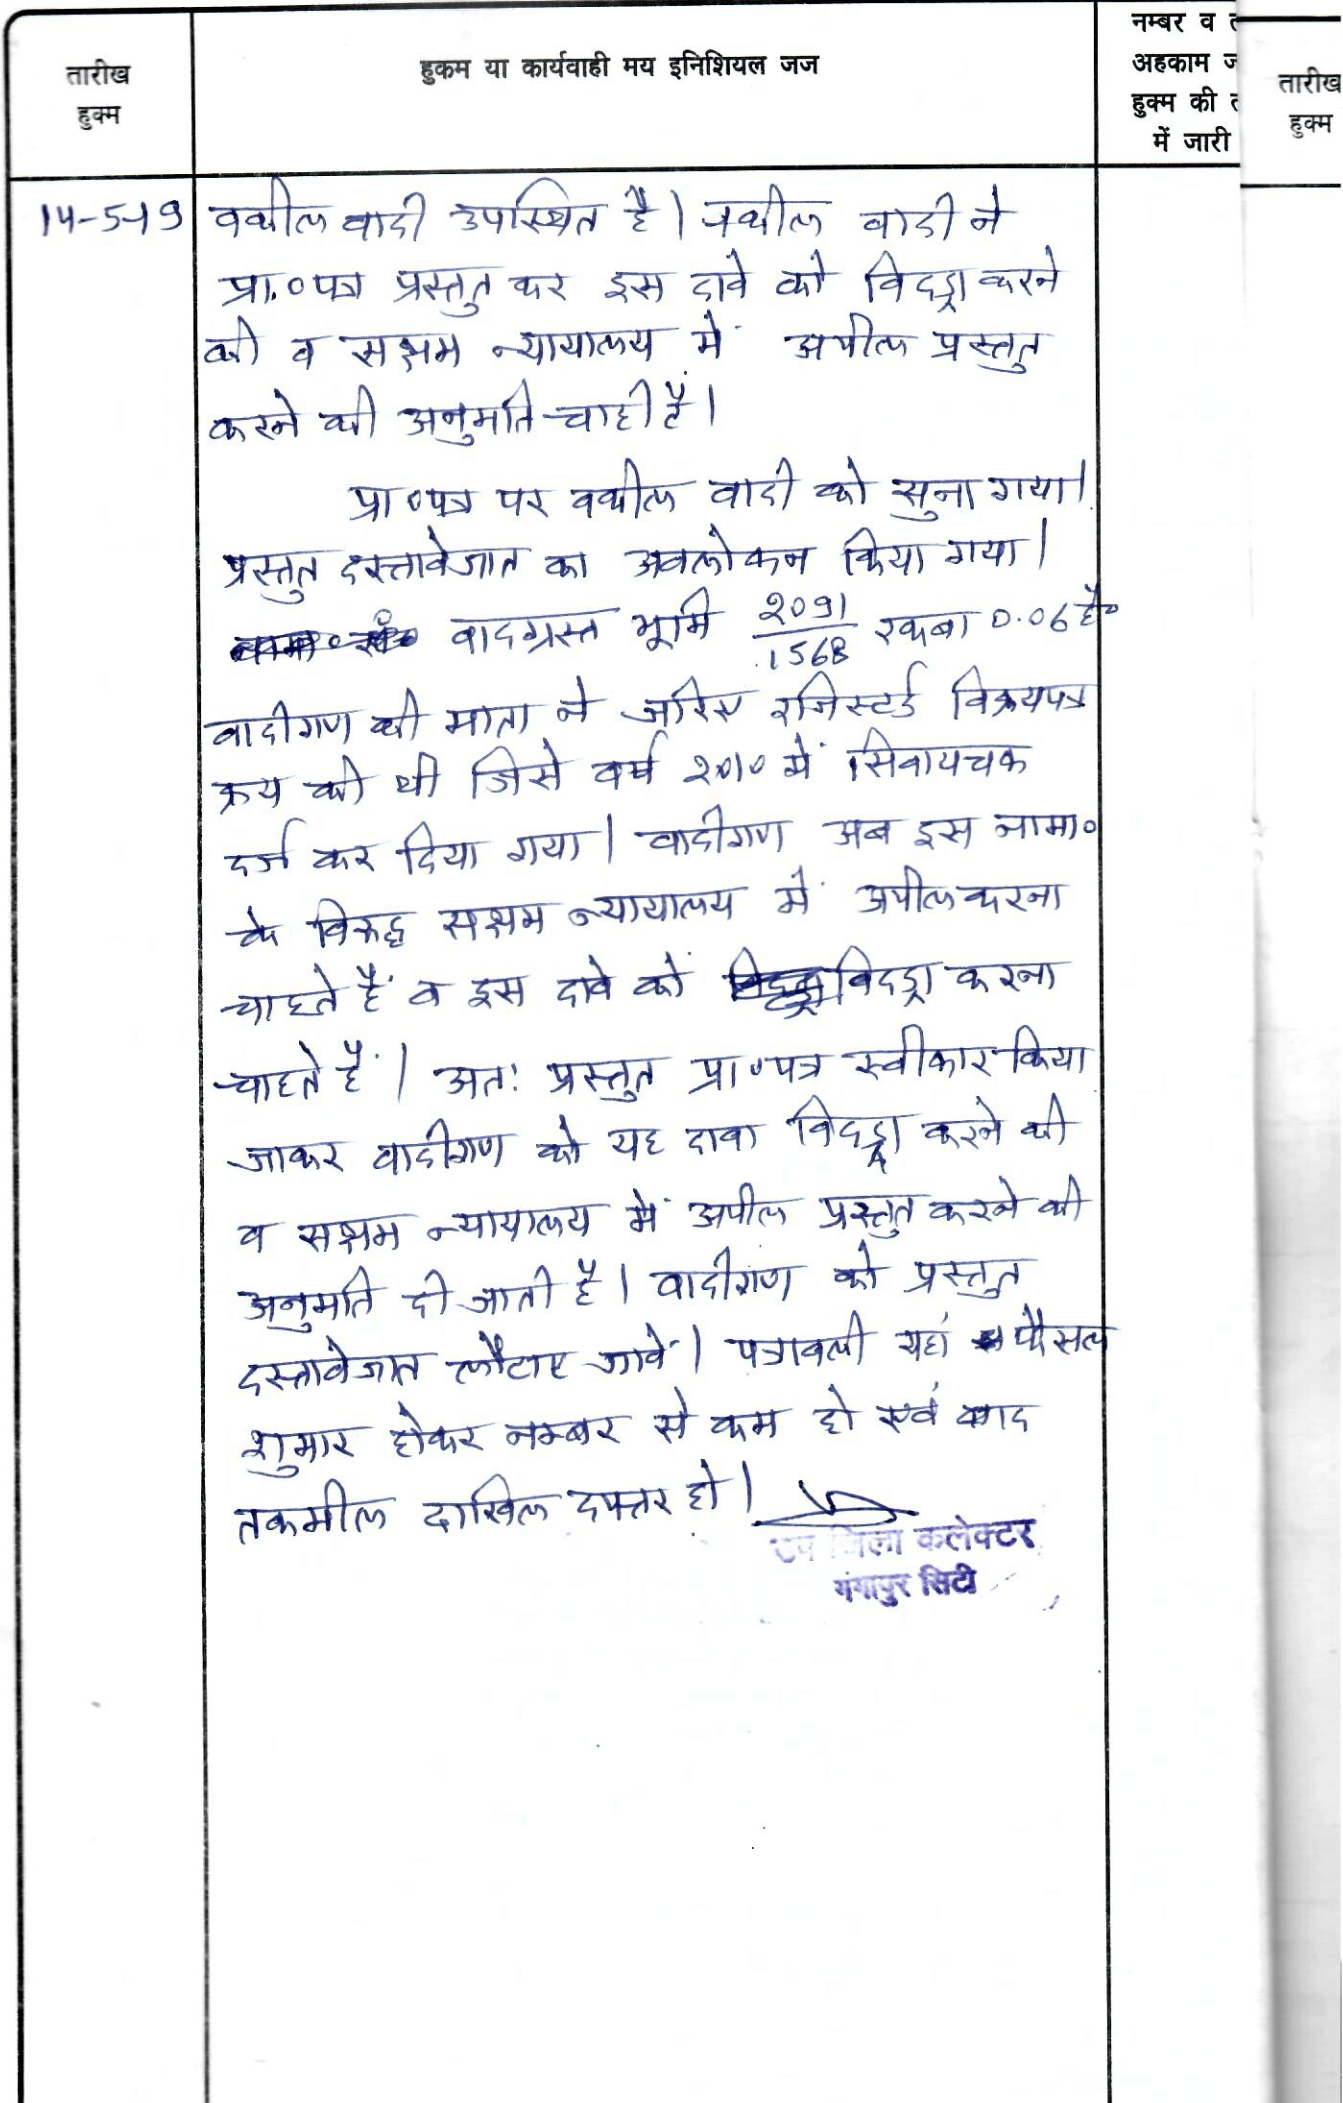 तारीख
हुक्म
हुकम या कार्यवाही मय इनिशियल जज
नम्बर व त
अहकाम ज
हुक्म की त
में जारी
तारीख
हुक्म
14-5-19
वकील वादी उपस्थित है। वकील वादी ने
प्रा.०पत्र प्रस्तुत कर इस दावे को विदड्रा करने
की व सक्षम न्यायालय में अपील प्रस्तुत
करने की अनुमति चाही है।
प्रा०पत्र पर वकील वादी को सुना गया।
प्रस्तुत दस्तावेजात का अवलोकन किया गया।
वादग्रस्त भूमि 2091/1568 रकबा 0.06 है०
वादीगण की माता ने जरिए रजिस्टर्ड विक्रयपत्र
क्रय की थी जिसे वर्ष 2010 में सिवायचक
दर्ज कर दिया गया। वादीगण अब इस नामा०
के विरुद्ध सक्षम न्यायालय में अपील करना
चाहते हैं व इस दावे को विदड्रा करना
चाहते हैं। अतः प्रस्तुत प्रा०पत्र स्वीकार किया
जाकर वादीगण को यह दावा विदड्रा करने की
व सक्षम न्यायालय में अपील प्रस्तुत करने की
अनुमति दी जाती है। वादीगण को प्रस्तुत
दस्तावेजात लौटाए जावें। पत्रावली यहां फैसल
शुमार होकर नम्बर से कम हो एवं बाद
तकमील दाखिल दफ्तर हो।
उप जिला कलेक्टर
गंगापुर सिटी